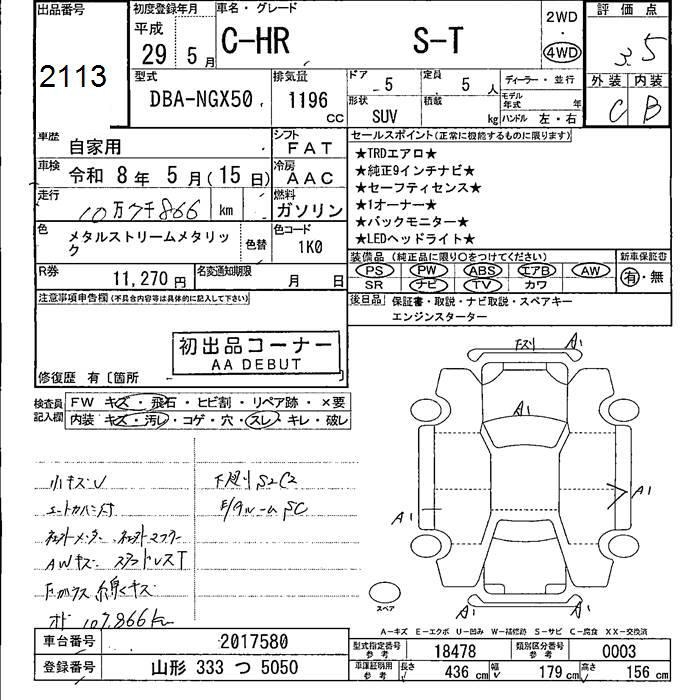 出品番号
2113
初度登録年月
平成
29 5月
車名・グレード
C-HR S-T
2WD
・
4WD
評価点
3.5
外装 内装
C B
型式
DBA-NGX50
排気量
1196 cc
ドア 5
定員 5 人
形状 SUV
積載 kg
ディーラー・並行
モデル年式 年
ハンドル 左・右
車歴 自家用
シフト FAT
車検 令和 8年 5月(15日)
冷房 AAC
走行 10万7千866 km
燃料 ガソリン
色 メタルストリームメタリック
色替
色コード 1K0
R券 11,270円
名変通知期限 月 日
セールスポイント(正常に機能するものに限ります)
★TRDエアロ★
★純正9インチナビ★
★セーフティセンス★
★1オーナー★
★バックモニター★
★LEDヘッドライト★
装備品 (純正品に限り○をつけてください)
PS PW ABS エアB AW
SR ナビ TV カワ
新車保証書
有・無
後日品 保証書・取説・ナビ取説・スペアキー
エンジンスターター
注意事項申告欄(不具合内容等は具体的に記入して下さい)
初出品コーナー
AA DEBUT
修復歴 有〔箇所
検査員記入欄
FW キズ・飛石・ヒビ割・リペア跡・×要
内装 キズ・汚レ・コゲ・穴・スレ・キレ・破レ
小キズU
シートカバー付
AWキズ スタッドレスT
Fガラス線キズ
オド 107,866km
下廻りS2C2
E/gルームSC
下スリ A1
A1
A1
A1
A1 A1
スペア
A-キズ E-エクボ U-凹み W-補修跡 S-サビ C-腐食 XX-交換済
車台番号 2017580
登録番号 山形 333 つ 5050
型式指定番号 参考 18478
類別区分番号 参考 0003
車庫証明用 参考 長さ 436 cm 幅 179 cm 高さ 156 cm